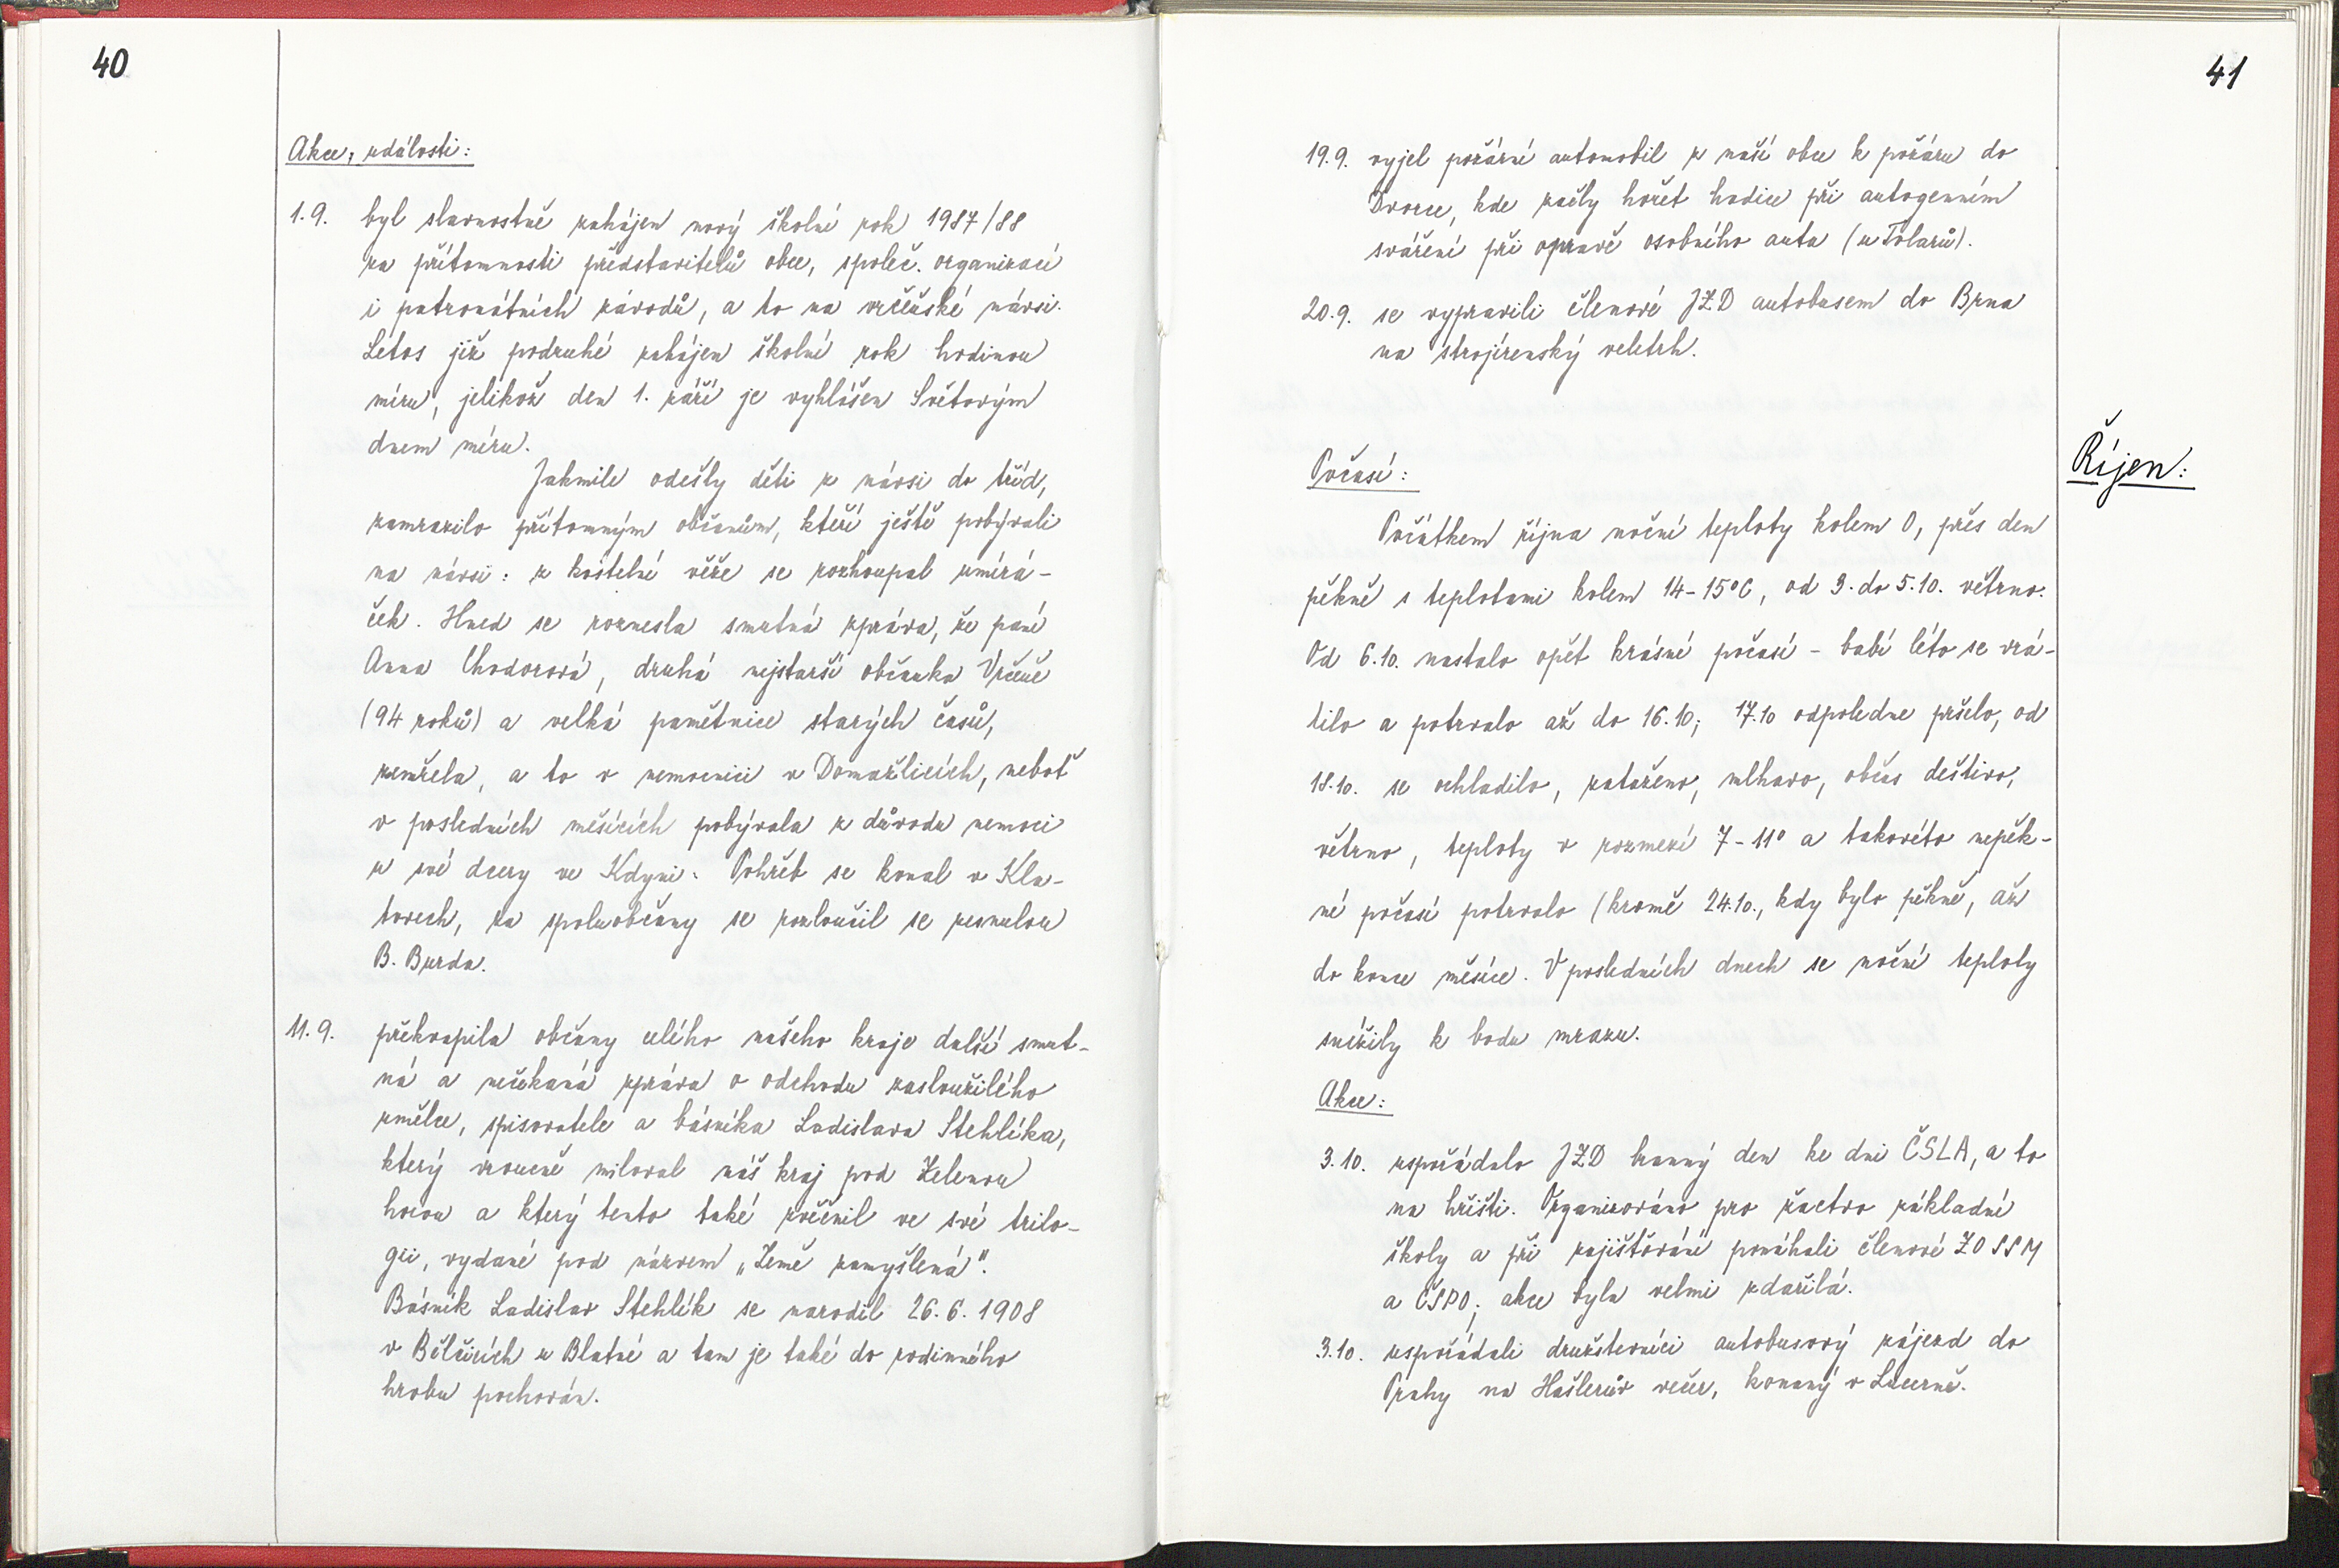 40
Akce, události:
1.9. byl slavnostně zahájen nový školní rok 1987/88
za přítomnosti představitelů obce, společ. organizací
i patronátních závodů, a to na vrčeňské návsi.
Letos již podruhé zahájen školní rok hodinou
míru, jelikož den 1. září je vyhlášen Světovým
dnem míru.
Jakmile odešly děti z návsi do tříd,
zamrazilo přítomným občanům, kteří ještě pobývali
na návsi: z kostelní věže se rozhoupal umírá-
ček. Hned se roznesla smutná zpráva, že paní
Anna Chodorová, druhá nejstarší občanka Vrčeně
(94 roků) a velká pamětnice starých časů,
zemřela, a to v nemocnici v Domažlicích, neboť
v posledních měsících pobývala z důvodu nemoci
u své dcery ve Kdyni. Pohřeb se konal v Kla-
tovech, za spoluobčany se rozloučil se zesnulou
B. Burda.
11.9. překvapila občany celého našeho kraje další smut-
ná a nečekaná zpráva o odchodu zasloužilého
umělce, spisovatele a básníka Ladislava Stehlíka,
který vroucně miloval náš kraj pod Zelenou
horou a který tento také zvěčnil ve své trilo-
gii, vydané pod názvem „Země zamyšlená".
Básník Ladislav Stehlík se narodil 26.6.1908
v Bělčicích u Blatné a tam je také do rodinného
hrobu pochován.
41
19.9. vyjel požární automobil z naší obce k požáru do
Dvorce, kde začly hořet hadice při autogenním
sváření při opravě osobního auta (u Tolarů).
20.9. se vypravili členové JZD autobusem do Brna
na strojírenský veletrh.
Říjen:
Počasí:
Počátkem října noční teploty kolem 0, přes den
pěkně s teplotami kolem 14-15°C, od 3. do 5.10. větrno.
Od 6.10. nastalo opět krásné počasí - babí léto se vrá-
tilo a potrvalo až do 16.10; 17.10 odpoledne pršelo, od
18.10. se ochladilo, zataženo, mlhavo, občas deštivo,
větrno, teploty v rozmezí 7-11° a takovéto nepěk-
né počasí potrvalo (kromě 24.10., kdy bylo pěkně, až
do konce měsíce. V posledních dnech se noční teploty
snížily k bodu mrazu.
Akce:
3.10. uspořádalo JZD branný den ke dni ČSLA, a to
na hřišti. Organizováno pro žactvo základní
školy a při zajišťování pomáhali členové ZO SSM
a ČSPO; akce byla velmi zdařilá.
3.10. uspořádali družstevníci autobusový zájezd do
Prahy na Hašlerův večer, konaný v Lucerně.